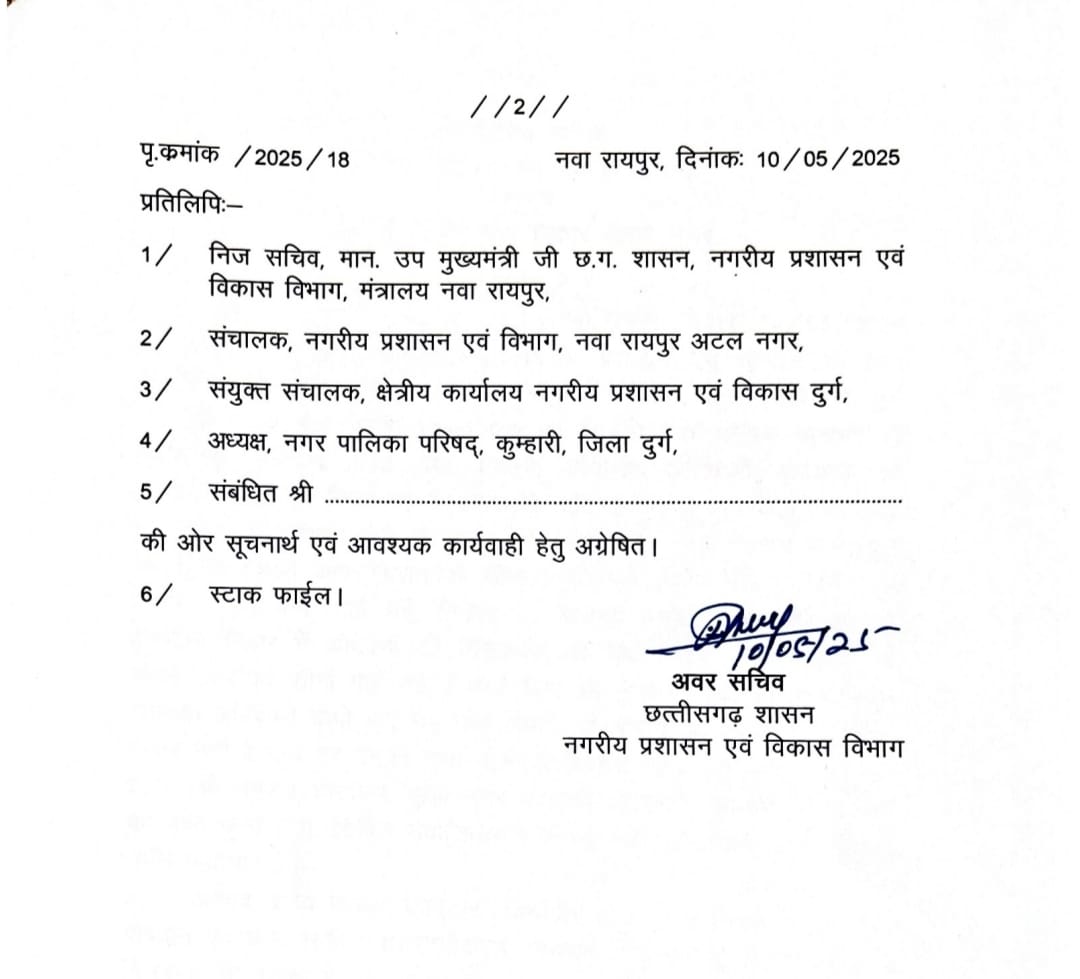 //2//
पृ.कमांक /2025/18 नवा रायपुर, दिनांकः 10/05/2025
प्रतिलिपिः–
1/ निज सचिव, मान. उप मुख्यमंत्री जी छ.ग. शासन, नगरीय प्रशासन एवं
विकास विभाग, मंत्रालय नवा रायपुर,
2/ संचालक, नगरीय प्रशासन एवं विभाग, नवा रायपुर अटल नगर,
3/ संयुक्त संचालक, क्षेत्रीय कार्यालय नगरीय प्रशासन एवं विकास दुर्ग,
4/ अध्यक्ष, नगर पालिका परिषद्, कुम्हारी, जिला दुर्ग,
5/ संबंधित श्री ....................................................................................
की ओर सूचनार्थ एवं आवश्यक कार्यवाही हेतु अग्रेषित।
6/ स्टाक फाईल।
10/05/25
अवर सचिव
छत्तीसगढ़ शासन
नगरीय प्रशासन एवं विकास विभाग